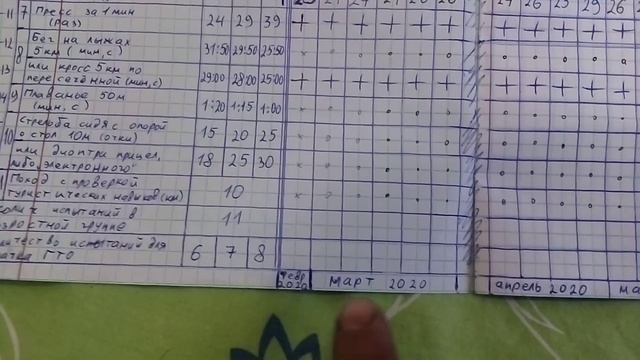 11 7 Пресс за 1 мин
(раз) 24 29 39
12 Бег на лыжах
8 5 км (мин, с) 31:50 29:50 25:50
13 или кросс 5 км по
пересечённой (мин, с) 29:00 28:00 25:00
9 Плаванье 50м
(мин, с) 1:20 1:15 1:00
Стрельба сидя с опорой
10 о стол 10м (очки) 15 20 25
или диоптр. прицел,
либо "электронного" 18 25 30
Поход с проверкой
туристических навыков (км) 10
испытаний в
группе 11
испытаний для
ГТО 6 7 8
февр
2020 март 2020
апрель 2020 ма